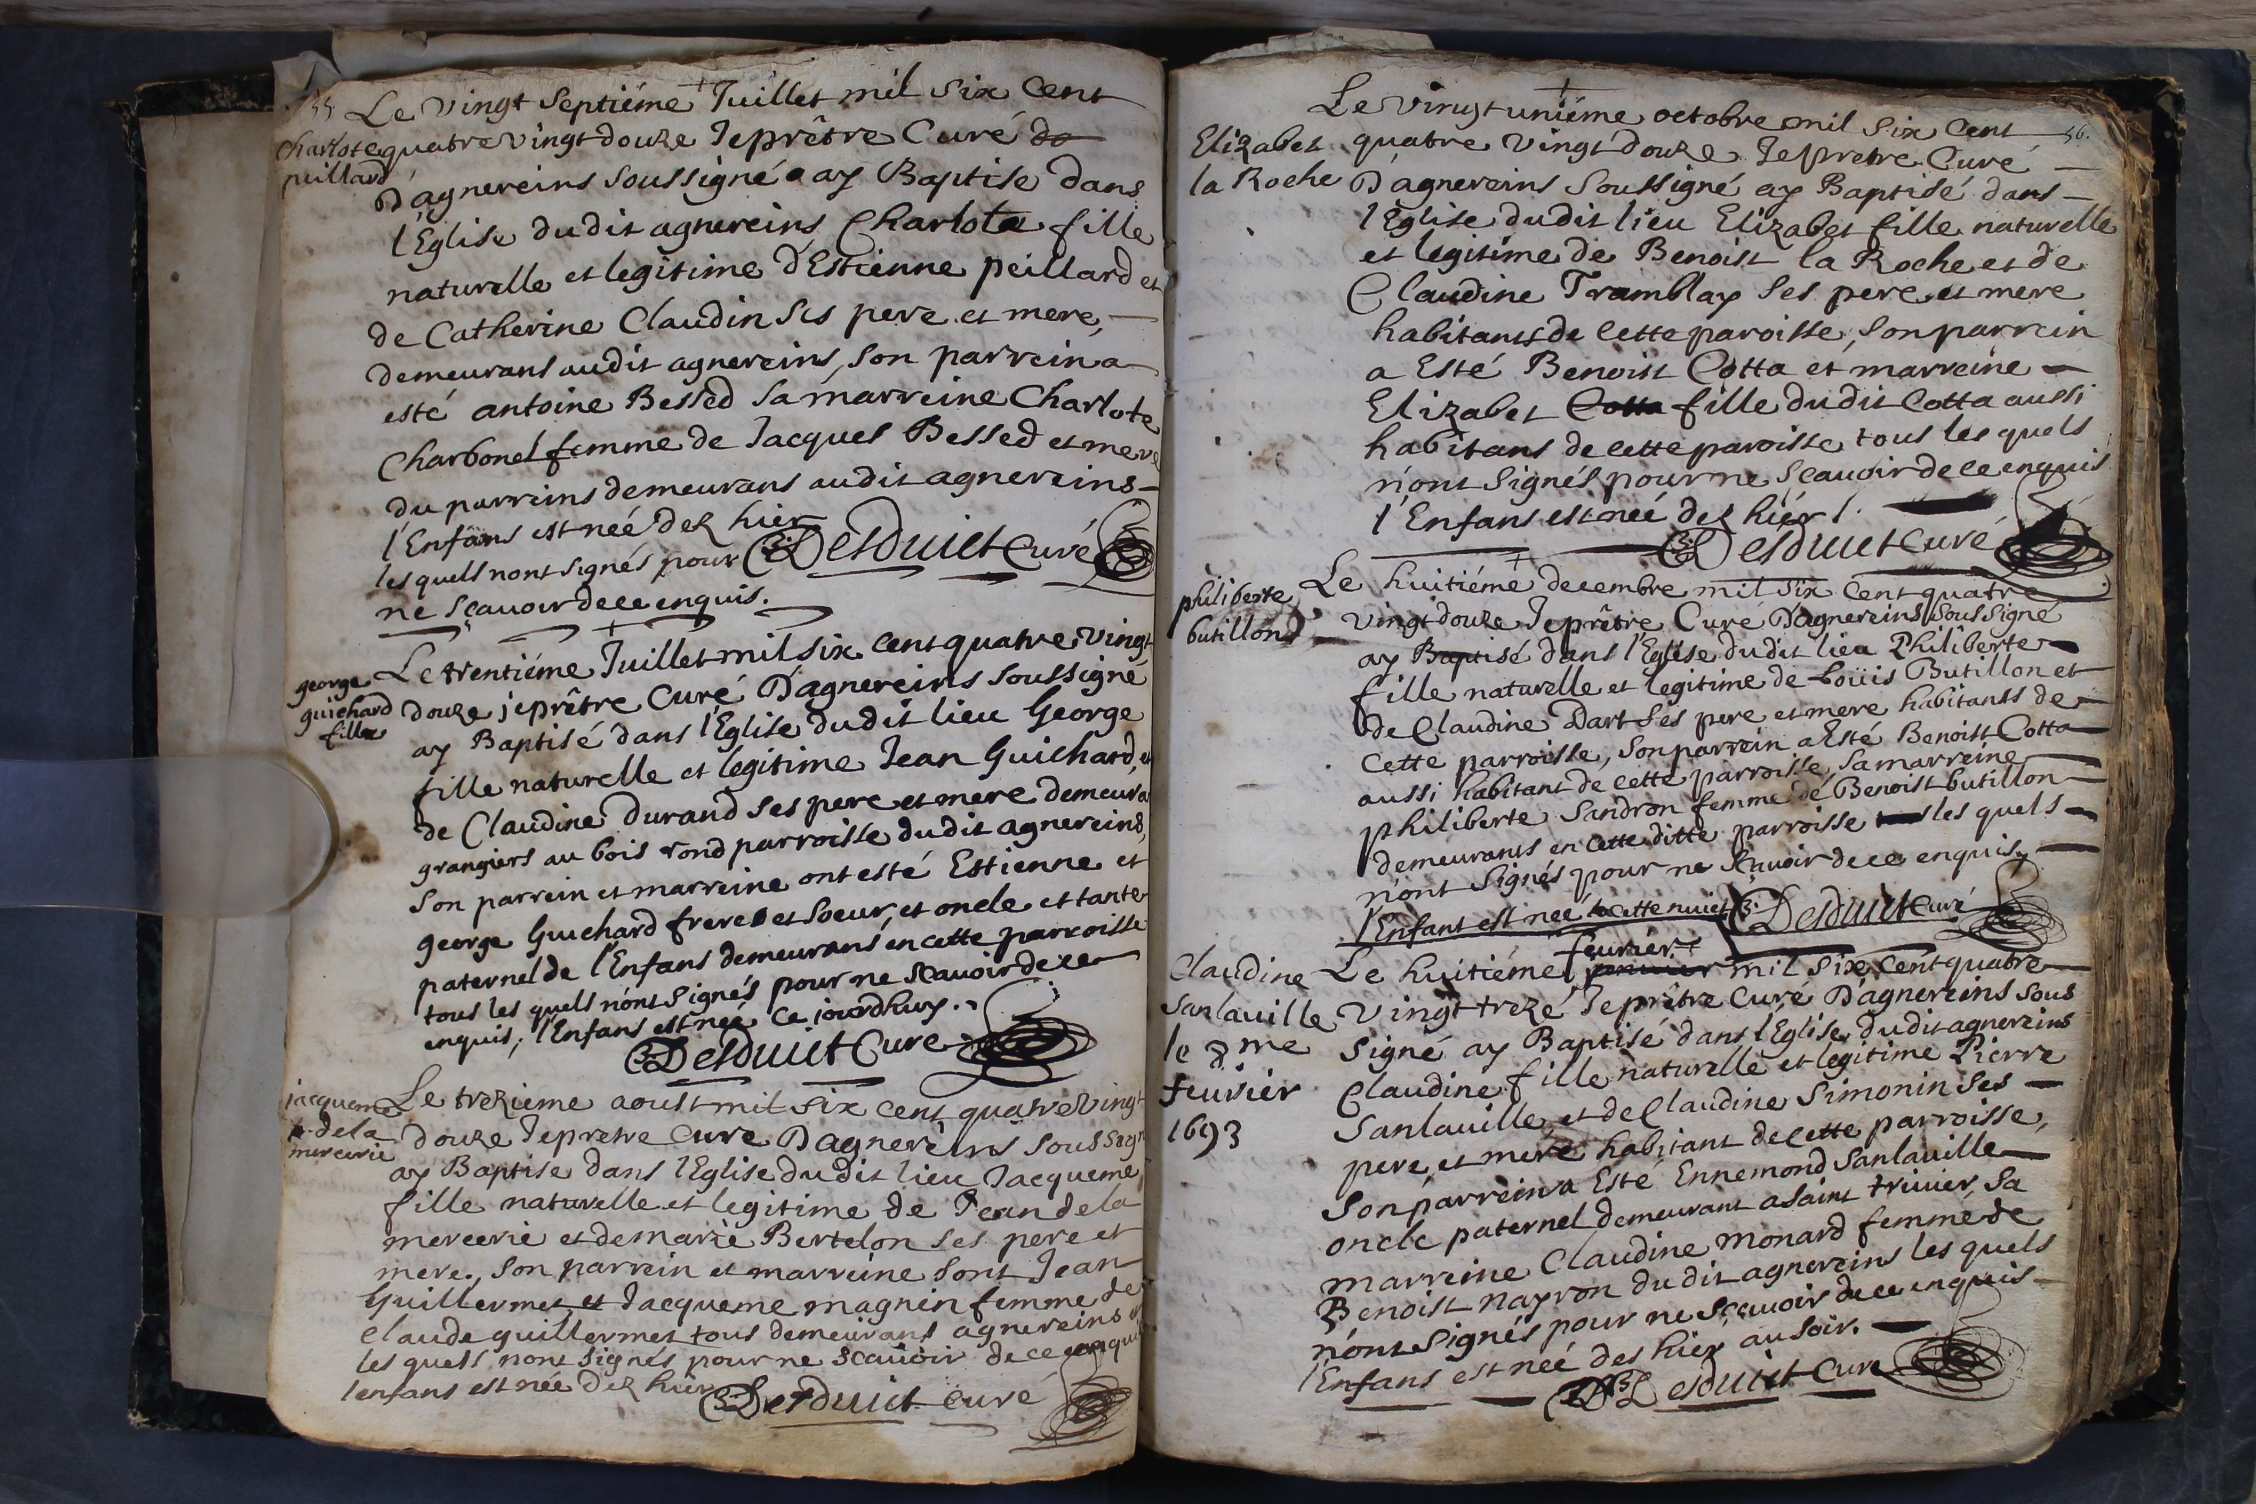 55
Le vingt septiéme Juillet mil six cent
Charlote
peillard
quatre vingt douze Je prêtre Curé do
D'agnereins soussigné ay Baptise dans
l'Eglise dudit agnereins Charlote fille
naturelle et legitime d'Estienne peillard et
de Catherine Claudin ses pere et mere,
demeurans audit agnereins, son parrein a
esté antoine Bessed sa marreine Charlote
Charbonel femme de Jacques Bessed et mere
du parreins demeurans audit agnereins
l'Enfans est neé dez hier
les quels nont signés pour
ne sçavoir de ce enquis.
Desduict Curé
george
guichard
fille
Le trentiéme Juillet mil six cent quatre vingt
douze je prêtre Curé D'agnereins soussigné
ay Baptisé dans l'Eglise dudit lieu George
fille naturelle et légitime Jean Guichard, et
de Claudine Durand ses pere et mere demeura
grangiers au bois rond parroisse dudit agnereins,
son parrein et marreine ont esté Estienne et
george Guichard frere et soeur, et oncle et tante
paternel de l'Enfans demeurans en cette parroisse
tous les quels n'ont signés pour ne scavoir de ce
enquis, l'Enfans est neé ce jourdhuy.
Desduict Curé
jacqueme
de la
mercerie
Le trezieme aoust mil six cent quatre vingt
douze Je pretre Curé D'agnereins soussign
ay Baptise dans l'Eglise dudit lieu Jacqueme
fille naturelle et legitime de Jean de la
mercerie et de marie Bertelon ses pere et
mere, son parrein et marreine sont Jean
Guillermet et Jacqueme magnin femme de
Claude guillermet tous demeurans agnereins
les quels nont signés pour ne scavoir de ce enquis
lenfans est née dez hier
Desduict curé
56.
Le vingt uniéme octobre mil six cent
Elizabet
la Roche
quatre vingt douze Je pretre Curé
D'agnereins soussigné ay Baptisé dans
l'Eglise dudit lieu Elizabet fille naturelle
et legitime de Benoist la Roche et de
Claudine Tramblay ses pere et mere
habitants de cette paroisse, son parrein
a Esté Benoist Cotta et marreine
Elizabet Cotta fille dudit Cotta aussi
habitans de cette paroisse tous les quels
n'ont signés pour ne scavoir de ce enquis
l'Enfans est neé dez hiér
Desduict Curé
philiberte
butillon
Le huitiéme decembre mil six cent quatre
vingt douze Je prêtre Curé D'agnereins soussigné
ay Baptisé dans l'Eglise dudit lieu Philiberte
fille naturelle et legitime de Loüis Butillon et
de Claudine Dart ses pere et mere habitants de
cette parroisse, son parrein a Esté Benoist Cotta
aussi habitant de cette parroisse, sa marreine
philiberte Sandron femme de Benoist butillon
demeurants en cette ditte parroisse les quels
n'ont signés pour ne scavoir de ce enquis,
l'Enfant est neé cette nuict
Desduict Curé
Claudine
Sanlaville
le 8me
feuvier
1693
Le huitiéme feuvrier janvier mil six cent quatre
vingt treze Je prêtre Curé D'agnereins sous
signé ay Baptisé dans l'Eglise dudit agnereins
Claudine fille naturelle et legitime Pierre
Sanlaville et de Claudine Simonin ses
pere, et mere habitant de cette parroisse,
son parrein a Esté Ennemond Sanlaville
oncle paternel demeurant a saint trivier, sa
marreine Claudine monard femme de
Benoist nayron dudit agnereins les quels
n'ont signés pour ne sçavoir de ce enquis
l'Enfans est neé des hier au soir.
Desduict Curé